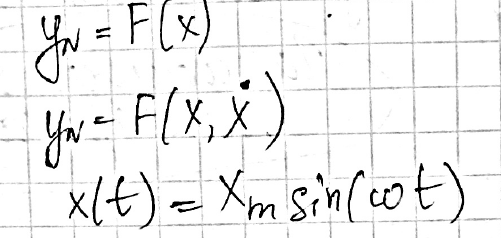 y_N = F(x)
y_N = F(x, ẋ)
x(t) = x_m sin(ωt)